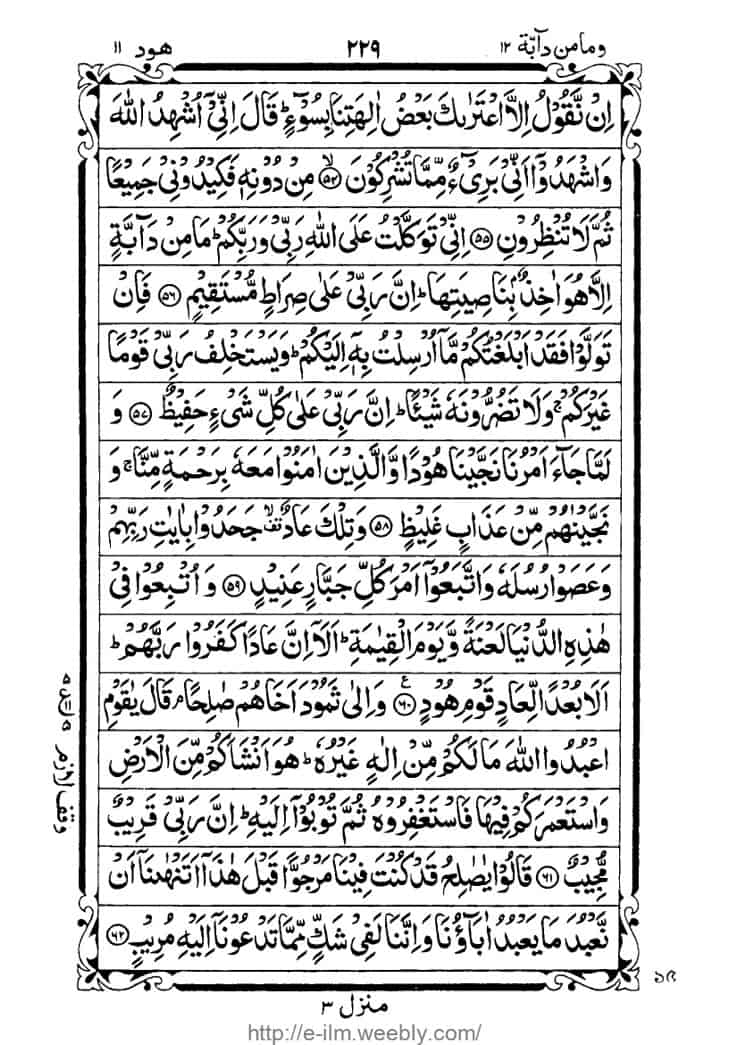 وما من دآبة ١٢ ٢٢٩ هود ١١
اِنْ نَّقُوْلُ اِلَّا اعْتَرٰىكَ بَعْضُ اٰلِهَتِنَا بِسُوْٓءٍ ؕ قَالَ اِنِّیْۤ اُشْهِدُ اللّٰهَ
وَاشْهَدُوْۤا اَنِّیْ بَرِیْٓءٌ مِّمَّا تُشْرِكُوْنَ ۙ﴿۵۴﴾ مِنْ دُوْنِهٖ فَكِیْدُوْنِیْ جَمِیْعًا
ثُمَّ لَا تُنْظِرُوْنِ ﴿۵۵﴾ اِنِّیْ تَوَكَّلْتُ عَلَی اللّٰهِ رَبِّیْ وَرَبِّكُمْ ؕ مَا مِنْ دَآبَّةٍ
اِلَّا هُوَ اٰخِذٌۢ بِنَاصِیَتِهَا ؕ اِنَّ رَبِّیْ عَلٰی صِرَاطٍ مُّسْتَقِیْمٍ ﴿۵۶﴾ فَاِنْ
تَوَلَّوْا فَقَدْ اَبْلَغْتُكُمْ مَّاۤ اُرْسِلْتُ بِهٖۤ اِلَیْكُمْ ؕ وَیَسْتَخْلِفُ رَبِّیْ قَوْمًا
غَیْرَكُمْ ۚ وَلَا تَضُرُّوْنَهٗ شَیْئًا ؕ اِنَّ رَبِّیْ عَلٰی كُلِّ شَیْءٍ حَفِیْظٌ ﴿۵۷﴾ وَ
لَمَّا جَآءَ اَمْرُنَا نَجَّیْنَا هُوْدًا وَّالَّذِیْنَ اٰمَنُوْا مَعَهٗ بِرَحْمَةٍ مِّنَّا ۚ وَ
نَجَّیْنٰهُمْ مِّنْ عَذَابٍ غَلِیْظٍ ﴿۵۸﴾ وَتِلْكَ عَادٌ ۟ۙ جَحَدُوْا بِاٰیٰتِ رَبِّهِمْ
وَعَصَوْا رُسُلَهٗ وَاتَّبَعُوْۤا اَمْرَ كُلِّ جَبَّارٍ عَنِیْدٍ ﴿۵۹﴾ وَاُتْبِعُوْا فِیْ
هٰذِهِ الدُّنْیَا لَعْنَةً وَّیَوْمَ الْقِیٰمَةِ ؕ اَلَاۤ اِنَّ عَادًا كَفَرُوْا رَبَّهُمْ ؕ
اَلَا بُعْدًا لِّعَادٍ قَوْمِ هُوْدٍ ﴿۶۰﴾ ع وَاِلٰی ثَمُوْدَ اَخَاهُمْ صٰلِحًا ۘ قَالَ یٰقَوْمِ
اعْبُدُوا اللّٰهَ مَا لَكُمْ مِّنْ اِلٰهٍ غَیْرُهٗ ؕ هُوَ اَنْشَاَكُمْ مِّنَ الْاَرْضِ
وَاسْتَعْمَرَكُمْ فِیْهَا فَاسْتَغْفِرُوْهُ ثُمَّ تُوْبُوْۤا اِلَیْهِ ؕ اِنَّ رَبِّیْ قَرِیْبٌ
مُّجِیْبٌ ﴿۶۱﴾ قَالُوْا یٰصٰلِحُ قَدْ كُنْتَ فِیْنَا مَرْجُوًّا قَبْلَ هٰذَاۤ اَتَنْهٰىنَاۤ اَنْ
نَّعْبُدَ مَا یَعْبُدُ اٰبَآؤُنَا وَاِنَّنَا لَفِیْ شَكٍّ مِّمَّا تَدْعُوْنَاۤ اِلَیْهِ مُرِیْبٍ ﴿۶۲﴾
وقف لازم
منزل ٣
http://e-ilm.weebly.com/